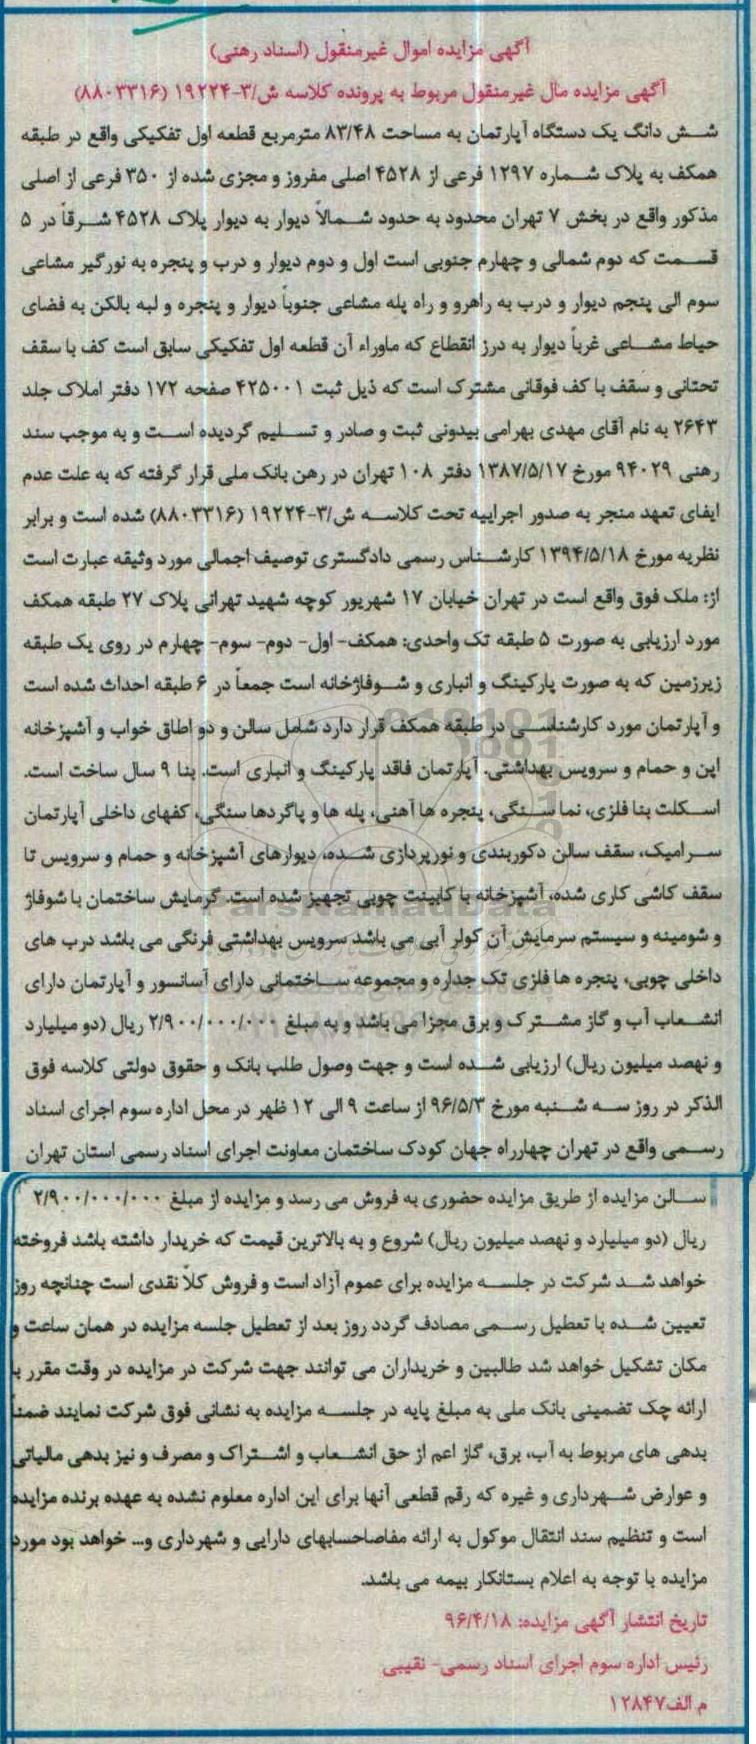 آگهی مزایده اموال غیرمنقول (اسناد رهنی)
آگهی مزایده مال غیرمنقول مربوط به پرونده کلاسه ش/۳-۱۹۲۲۴ (۸۸۰۳۳۱۶)
شش دانگ یک دستگاه آپارتمان به مساحت ۸۳/۴۸ مترمربع قطعه اول تفکیکی واقع در طبقه
همکف به پلاک شماره ۱۲۹۷ فرعی از ۴۵۲۸ اصلی مفروز و مجزی شده از ۳۵۰ فرعی از اصلی
مذکور واقع در بخش ۷ تهران محدود به حدود شمالاً دیوار به دیوار پلاک ۴۵۲۸ شرقاً در ۵
قسمت که دوم شمالی و چهارم جنوبی است اول و دوم دیوار و درب و پنجره به نورگیر مشاعی
سوم الی پنجم دیوار و درب به راهرو و راه پله مشاعی جنوباً دیوار و پنجره و لبه بالکن به فضای
حیاط مشاعی غرباً دیوار به درز انقطاع که ماوراء آن قطعه اول تفکیکی سابق است کف با سقف
تحتانی و سقف با کف فوقانی مشترک است که ذیل ثبت ۴۲۵۰۰۱ صفحه ۱۷۲ دفتر املاک جلد
۲۶۴۳ به نام آقای مهدی بهرامی بیدونی ثبت و صادر و تسلیم گردیده است و به موجب سند
رهنی ۹۴۰۲۹ مورخ ۱۳۸۷/۵/۱۷ دفتر ۱۰۸ تهران در رهن بانک ملی قرار گرفته که به علت عدم
ایفای تعهد منجر به صدور اجراییه تحت کلاسه ش/۳-۱۹۲۲۴ (۸۸۰۳۳۱۶) شده است و برابر
نظریه مورخ ۱۳۹۴/۵/۱۸ کارشناس رسمی دادگستری توصیف اجمالی مورد وثیقه عبارت است
از: ملک فوق واقع است در تهران خیابان ۱۷ شهریور کوچه شهید تهرانی پلاک ۲۷ طبقه همکف
مورد ارزیابی به صورت ۵ طبقه تک واحدی: همکف- اول- دوم- سوم- چهارم در روی یک طبقه
زیرزمین که به صورت پارکینگ و انباری و شوفاژخانه است جمعاً در ۶ طبقه احداث شده است
و آپارتمان مورد کارشناسی در طبقه همکف قرار دارد شامل سالن و دو اطاق خواب و آشپزخانه
اپن و حمام و سرویس بهداشتی. آپارتمان فاقد پارکینگ و انباری است. بنا ۹ سال ساخت است.
اسکلت بنا فلزی، نما سنگی، پنجره ها آهنی، پله ها و پاگردها سنگی، کفهای داخلی آپارتمان
سرامیک، سقف سالن دکوربندی و نورپردازی شده، دیوارهای آشپزخانه و حمام و سرویس تا
سقف کاشی کاری شده، آشپزخانه با کابینت چوبی تجهیز شده است. گرمایش ساختمان با شوفاژ
و شومینه و سیستم سرمایش آن کولر آبی می باشد سرویس بهداشتی فرنگی می باشد درب های
داخلی چوبی، پنجره ها فلزی تک جداره و مجموعه ساختمانی دارای آسانسور و آپارتمان دارای
انشعاب آب و گاز مشترک و برق مجزا می باشد و به مبلغ ۲/۹۰۰/۰۰۰/۰۰۰ ریال (دو میلیارد
و نهصد میلیون ریال) ارزیابی شده است و جهت وصول طلب بانک و حقوق دولتی کلاسه فوق
الذکر در روز سه شنبه مورخ ۹۶/۵/۳ از ساعت ۹ الی ۱۲ ظهر در محل اداره سوم اجرای اسناد
رسمی واقع در تهران چهارراه جهان کودک ساختمان معاونت اجرای اسناد رسمی استان تهران
سالن مزایده از طریق مزایده حضوری به فروش می رسد و مزایده از مبلغ ۲/۹۰۰/۰۰۰/۰۰۰
ریال (دو میلیارد و نهصد میلیون ریال) شروع و به بالاترین قیمت که خریدار داشته باشد فروخته
خواهد شد شرکت در جلسه مزایده برای عموم آزاد است و فروش کلاً نقدی است چنانچه روز
تعیین شده با تعطیل رسمی مصادف گردد روز بعد از تعطیل جلسه مزایده در همان ساعت و
مکان تشکیل خواهد شد طالبین و خریداران می توانند جهت شرکت در مزایده در وقت مقرر با
ارائه چک تضمینی بانک ملی به مبلغ پایه در جلسه مزایده به نشانی فوق شرکت نمایند ضمناً
بدهی های مربوط به آب، برق، گاز اعم از حق انشعاب و اشتراک و مصرف و نیز بدهی مالیاتی
و عوارض شهرداری و غیره که رقم قطعی آنها برای این اداره معلوم نشده به عهده برنده مزایده
است و تنظیم سند انتقال موکول به ارائه مفاصاحسابهای دارایی و شهرداری و... خواهد بود مورد
مزایده با توجه به اعلام بستانکار بیمه می باشد.
تاریخ انتشار آگهی مزایده: ۹۶/۴/۱۸
رئیس اداره سوم اجرای اسناد رسمی- نقیبی
م الف۱۲۸۴۷
ParsNamadData